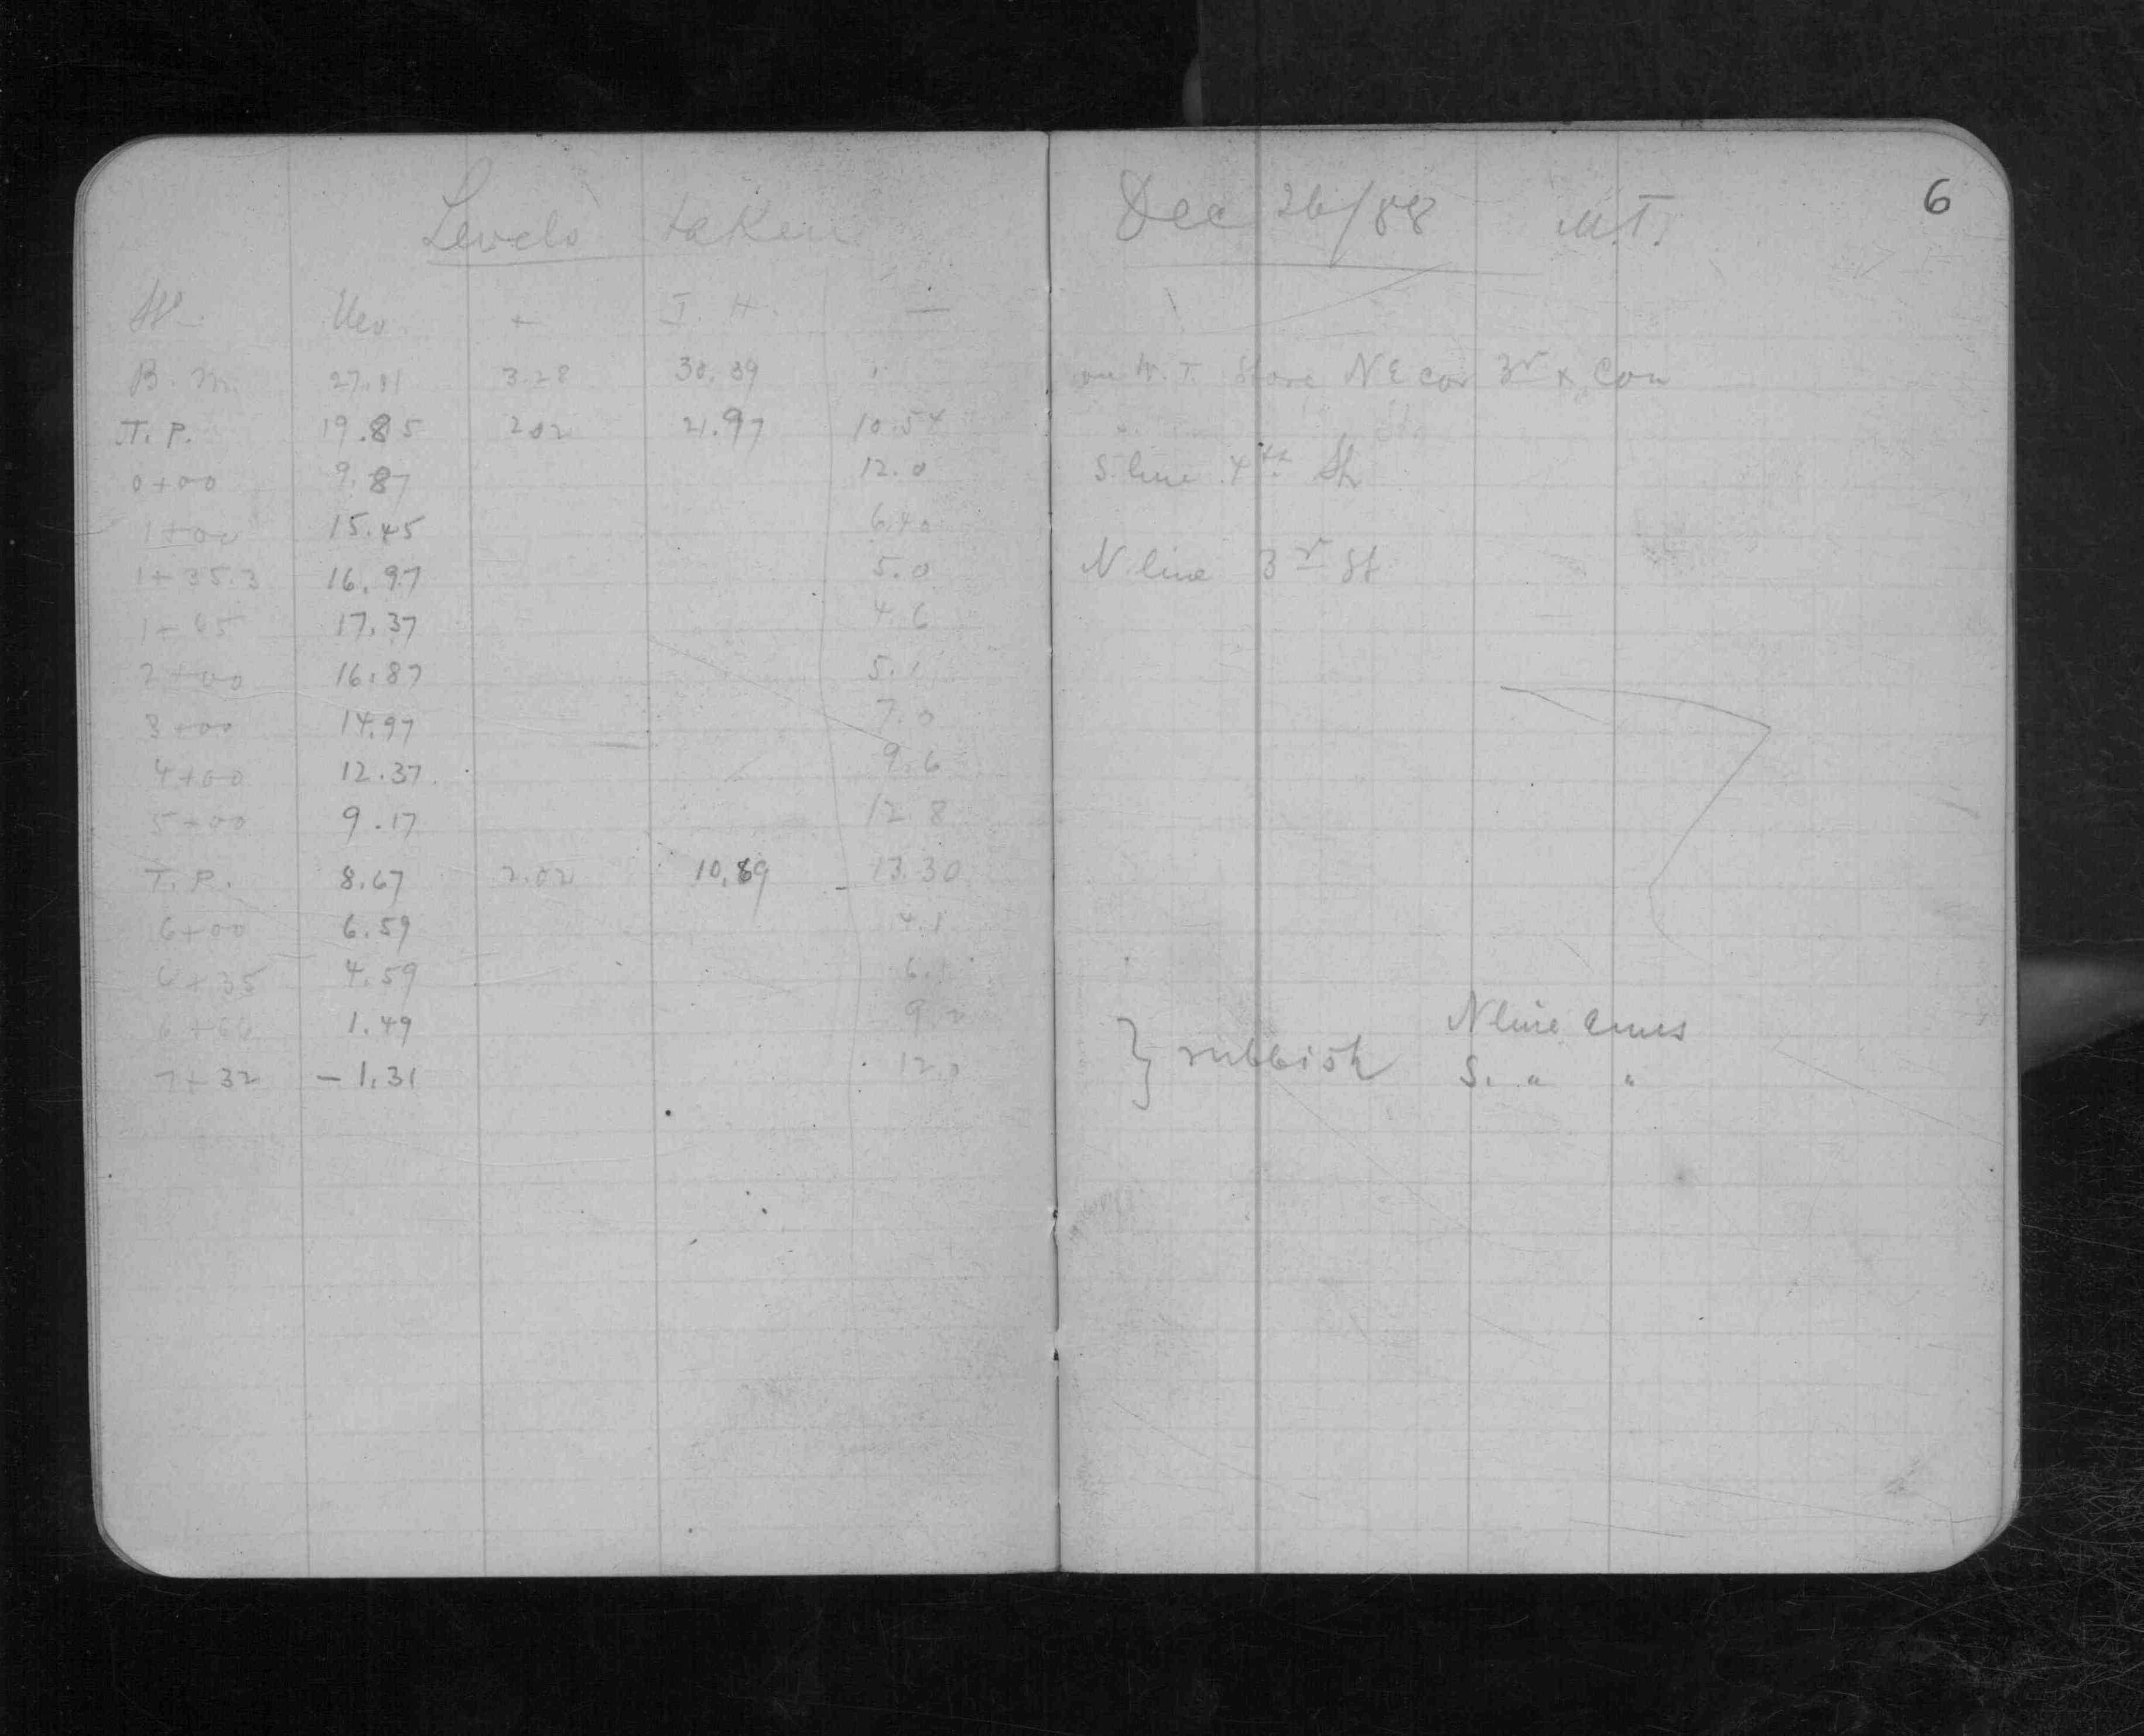 Levels taken Dec 26/88 M.T. 6
St. Elev. + I. H. —
B. M. 27.11 3.28 30.39 on W. T. Store N E cor 3r & Con
T. P. 19.85 2.02 21.97 10.54
0+00 9.87 12.0 S. line 4th St
1+00 15.45 6.40
1+35.3 16.97 5.0 N. line 3r St
1+65 17.37 4.6
2+00 16.87 5.1
3+00 14.97 7.0
4+00 12.37 9.6
5+00 9.17 12.8
T. P. 8.67 2.02 10.69 13.30
6+00 6.59 4.1
6+35 4.59 6.1
6+66 1.49 9.2 } rubbish N line Ames
7+32 -1.31 12.0 S. " "